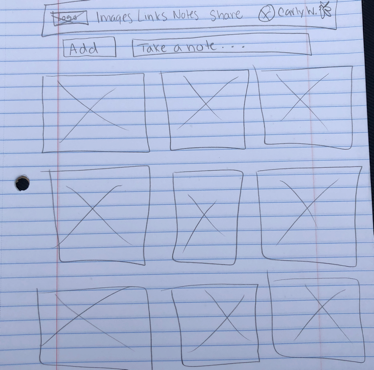 Images Links Notes Share Carly W.
Add Take a note...